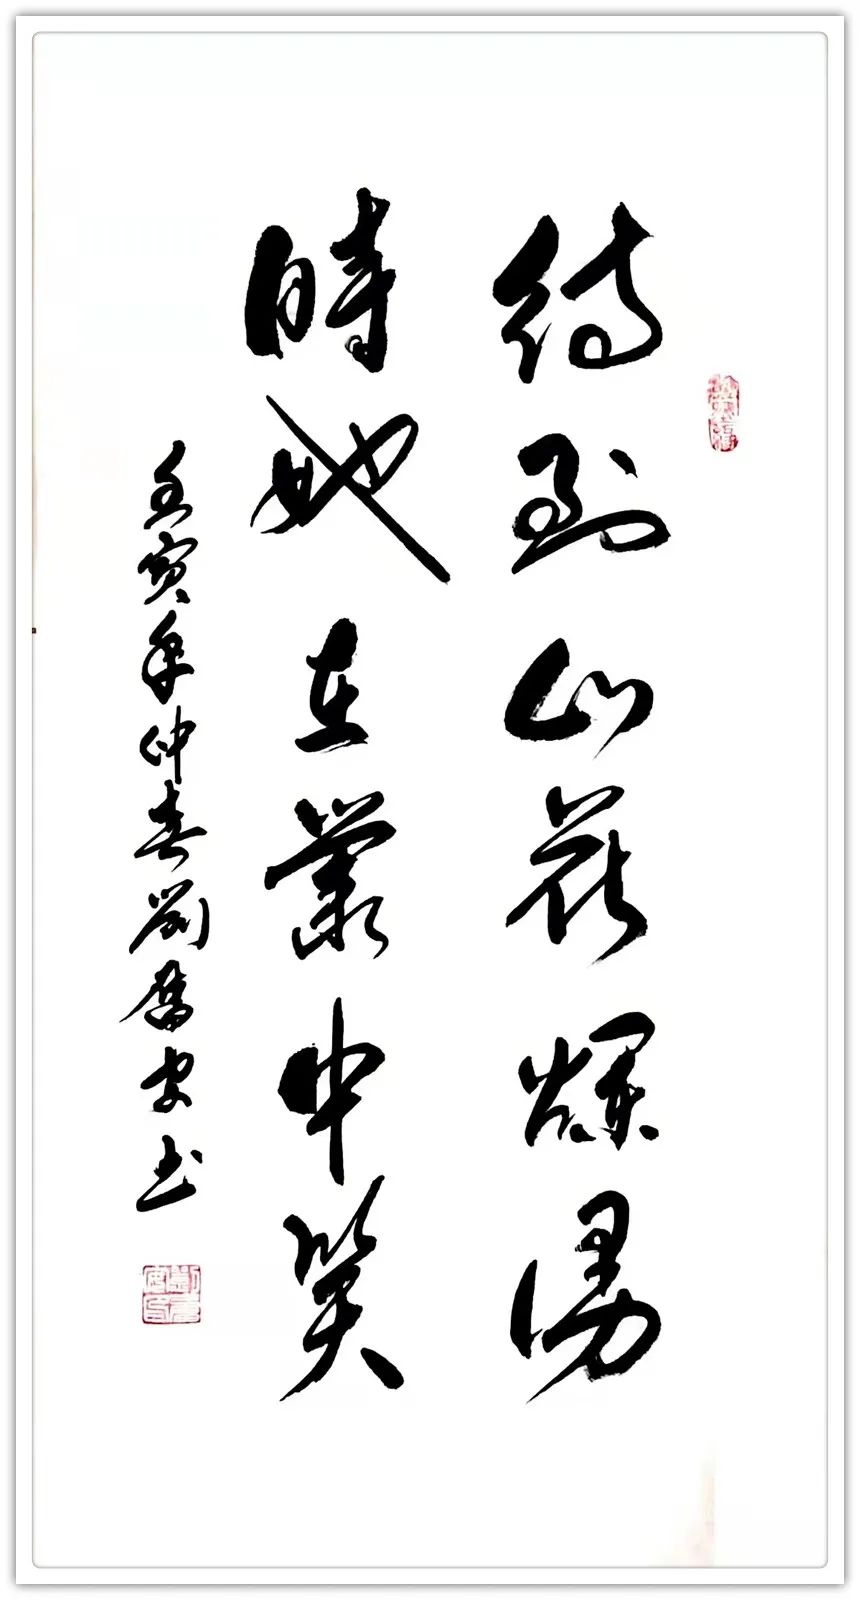 待到山花爛漫
時她在叢中笑
壬寅年仲春劉安书